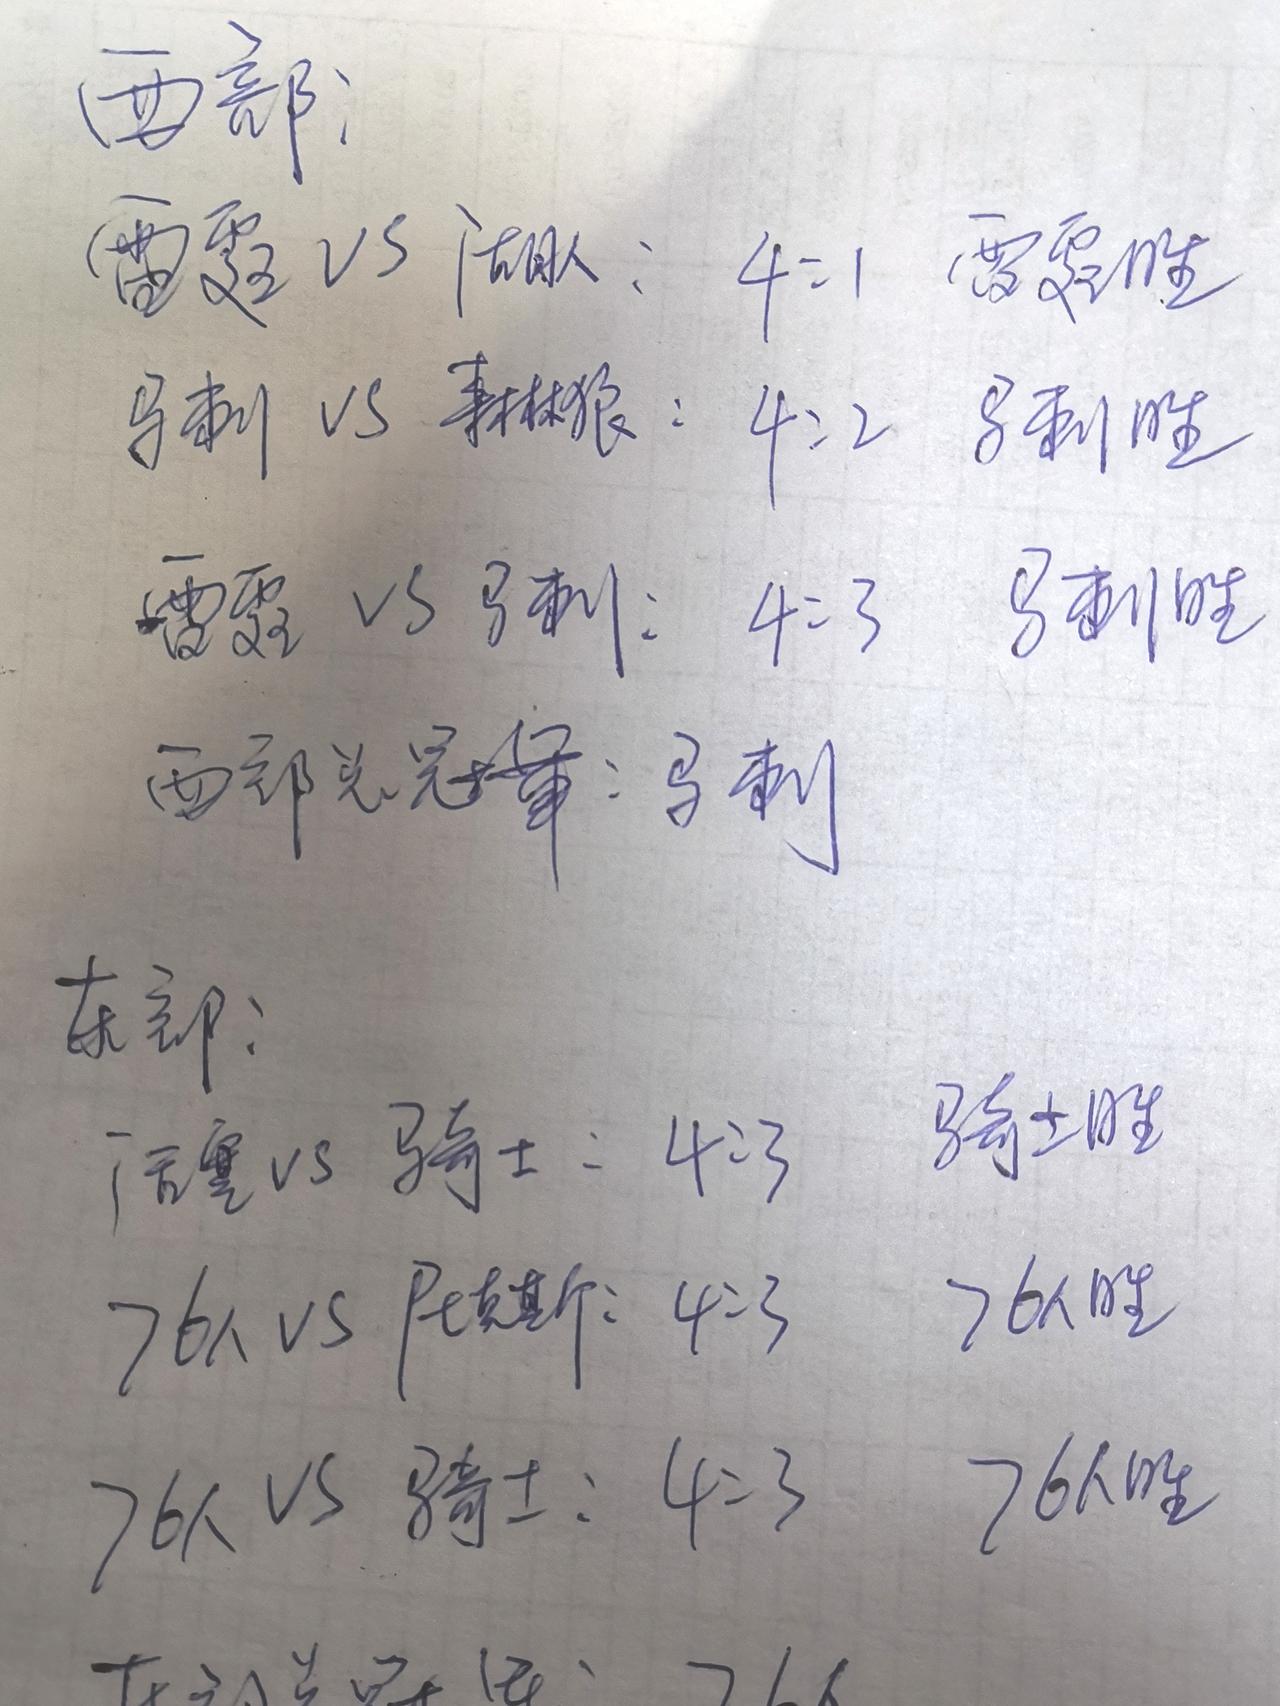 西部:
雷霆 VS 湖人: 4:1 雷霆胜
马刺 VS 森林狼: 4:2 马刺胜
雷霆 VS 马刺: 4:3 马刺胜
西部总冠军: 马刺
东部:
活塞 VS 骑士: 4:3 骑士胜
76人 VS 尼克斯: 4:3 76人胜
76人 VS 骑士: 4:3 76人胜
东部总冠军: 76人